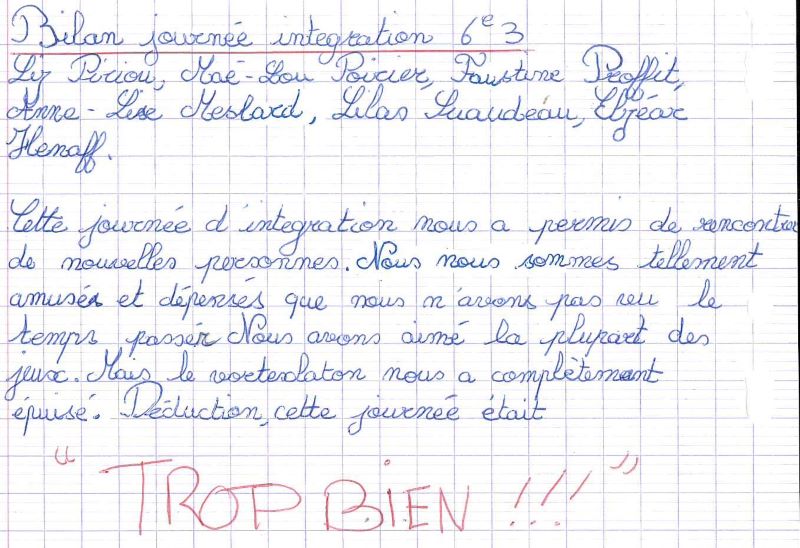 Bilan journée integration 6e3
Liz Piriou, Maé-Lou Poirier, Faustine Proffit,
Anne-Lise Meslard, Lilas Suaudeau, Elzéar
Henaff.
Cette journée d'integration nous a permis de rencontrer
de nouvelles personnes. Nous nous sommes tellement
amusés et dépensés que nous n'avons pas vu le
temps passer. Nous avons aimé la plupart des
jeux. Mais le nous a complètement
épuisé. Déduction, cette journée était
" TROP BIEN !!! "